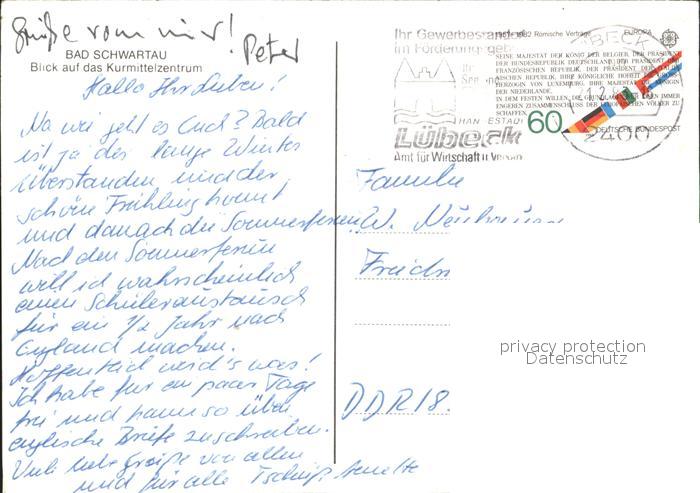 Grüße von mir! Peter
BAD SCHWARTAU
Blick auf das Kurmittelzentrum
Hallo Ihr Lieben!
Na wie geht es Euch? Bald
ist ja der lange Winter
überstanden und der
schöne Frühling kommt
und danach die Sommerferien.
Nach den Sommerferien
will ich wahrscheinlich
einen Schüleraustausch
für ein 1/2 Jahr nach
England machen.
Hoffentlich wird's was!
Ich habe für ein paar Tage
frei und kann so über
englische Briefe zuschreiben.
Viele liebe Grüße von allen
und für alle Tschüß
Ihr Gewerbestand
im Fördergebiet
HANSESTADT
Lübeck
Amt für Wirtschaft u Verkehr
1957-1982 Römische Verträge EUROPA
SEINE MAJESTÄT DER KÖNIG DER BELGIER, DER PRÄSIDENT
DER BUNDESREPUBLIK DEUTSCHLAND, DER PRÄSIDENT
FRANZÖSISCHEN REPUBLIK, DER PRÄSIDENT DER
REPUBLIK, IHRE KÖNIGLICHE HOHEIT
HERZOGIN VON LUXEMBURG, IHRE MAJESTÄT
DER NIEDERLANDE,
IN DEM FESTEN WILLEN, DIE GRUNDLAGEN IMMER
ENGEREN ZUSAMMENSCHLUSS DER EUROPÄISCHEN VÖLKER ZU
SCHAFFEN,
60
DEUTSCHE BUNDESPOST
LÜBECK
2400
Familie
W.
DDR 18.
privacy protection
Datenschutz